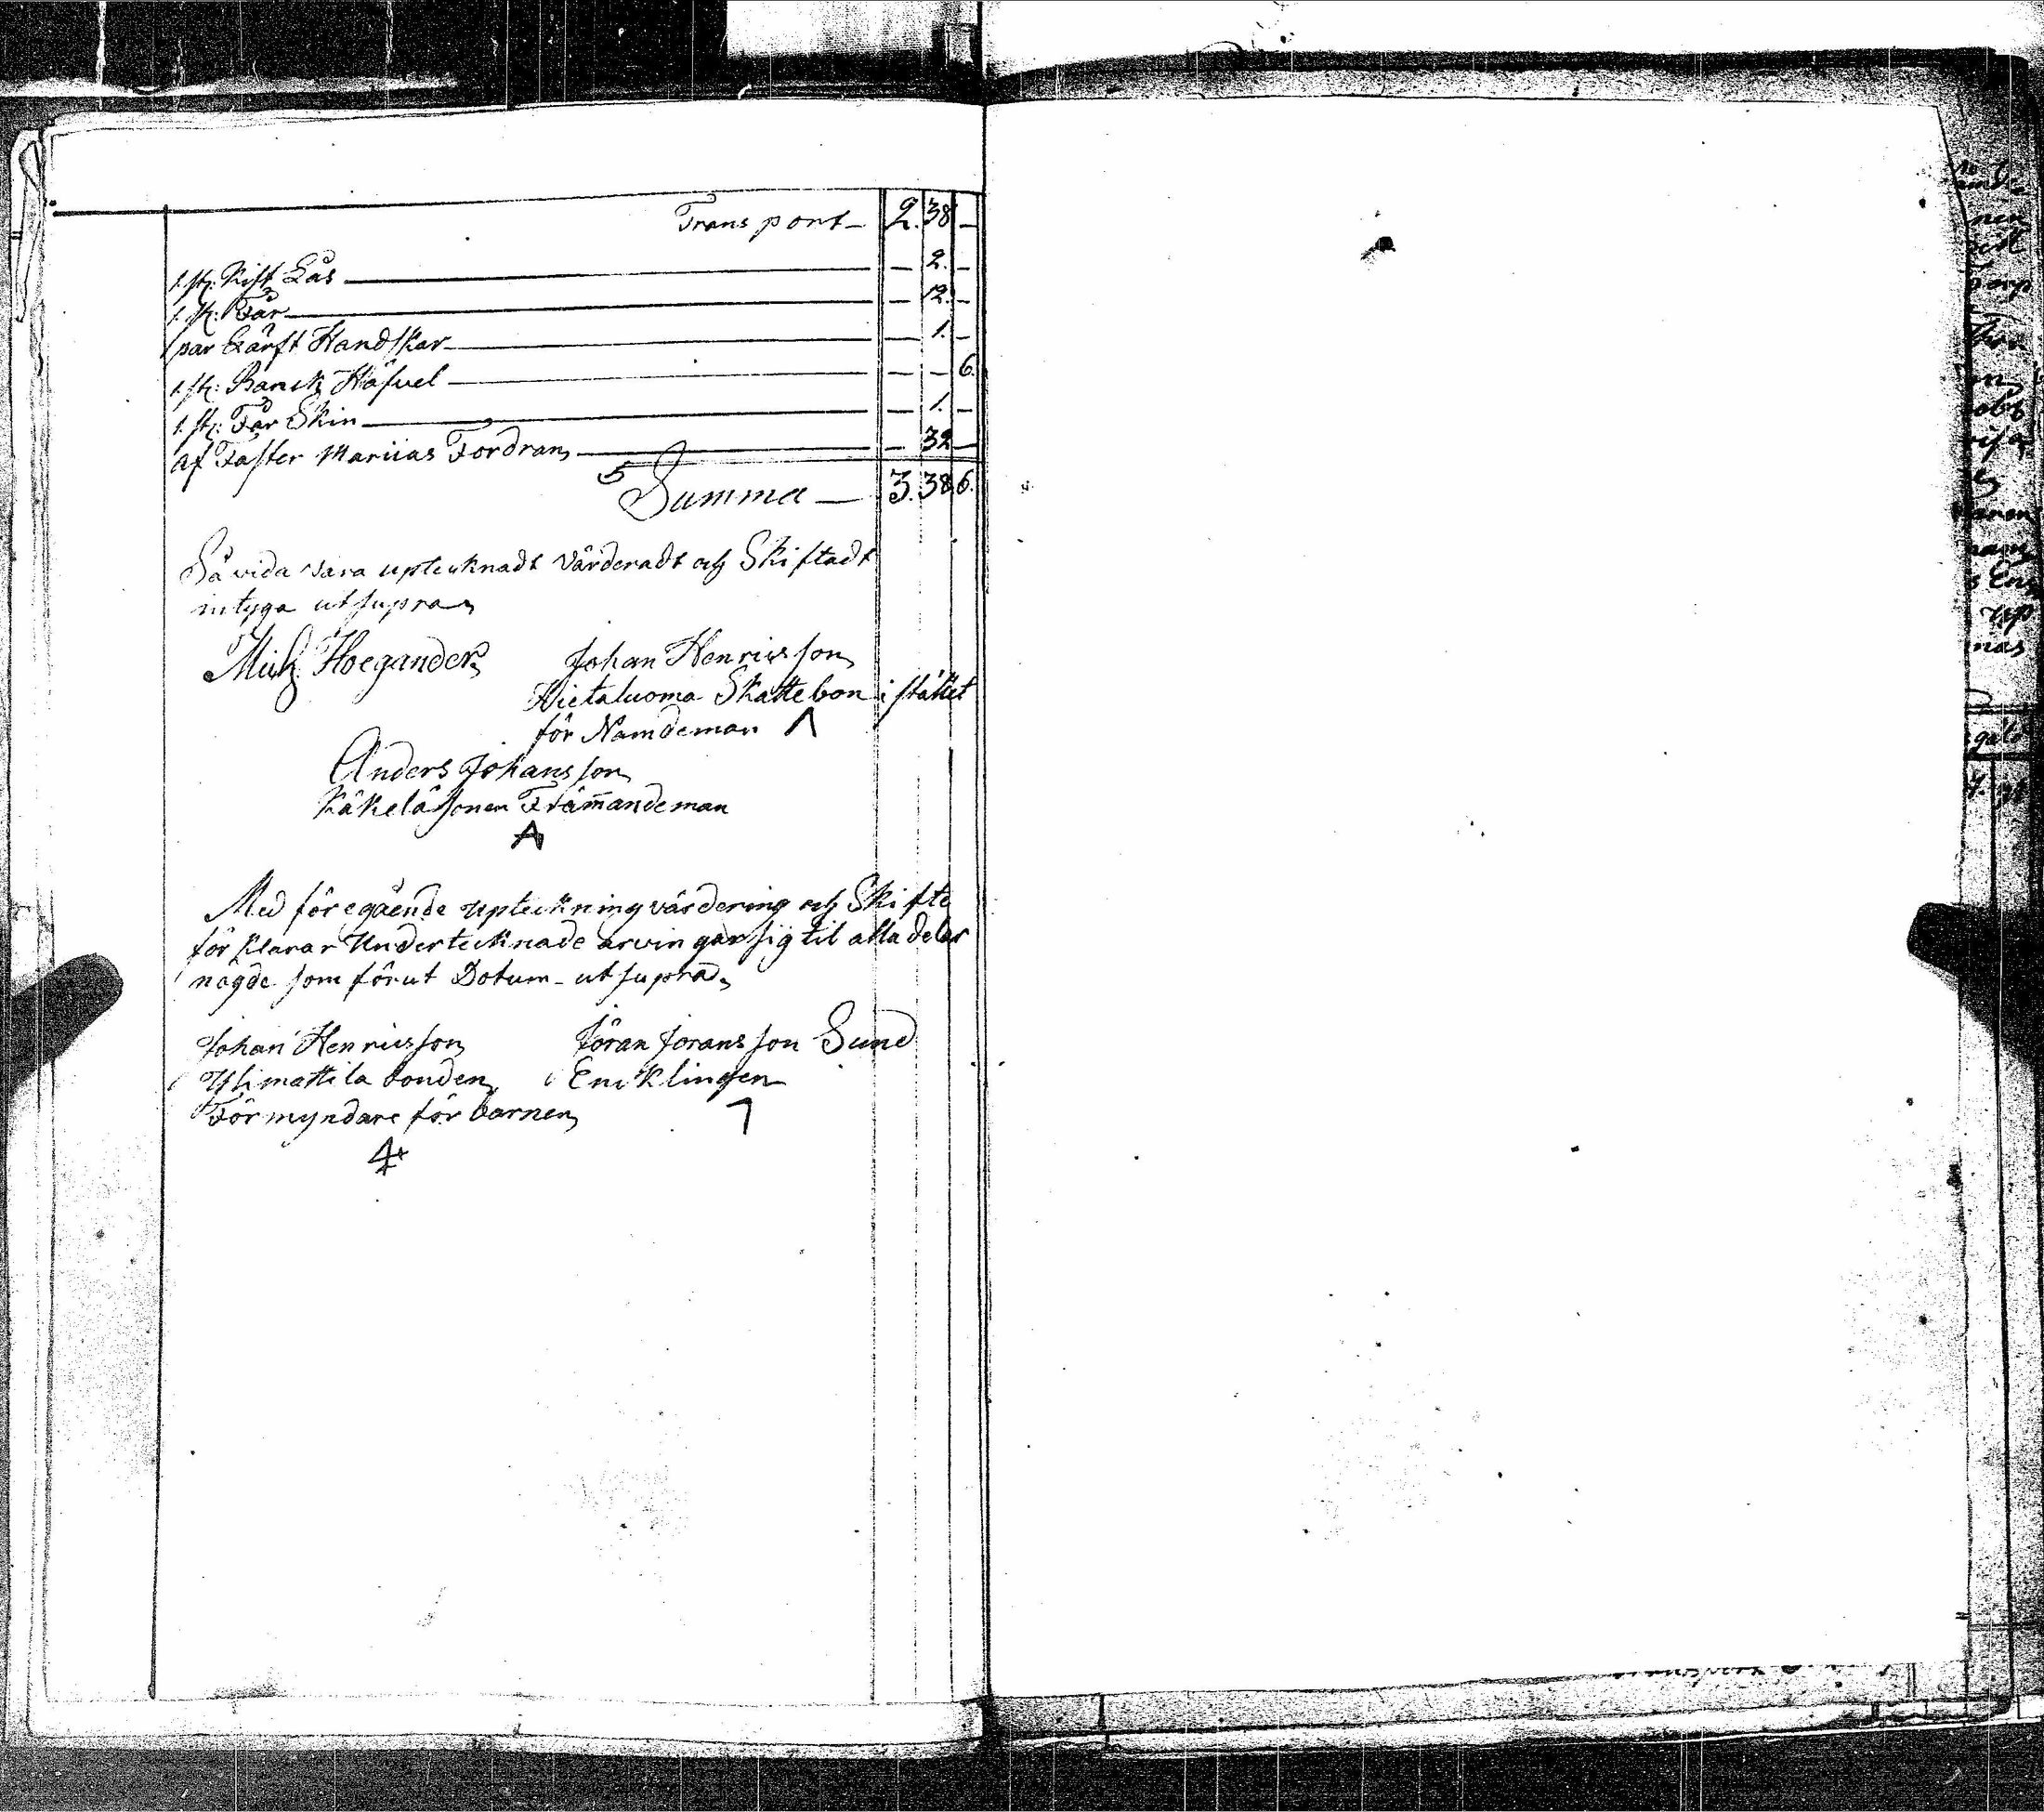 Transport 2. 38 –
1. st: Kist Lås – 2. –
1. st: Får – 12. –
1 par Gärft Handskar – 1. –
1. st: Banck Häfvel – – 6.
1. st: Får Skin – 1. –
af Faster Mariias Fordran – 32 –
Summa – 3. 38 6.
Så vida vara uptecknadt Värderadt och Skiftadt
intyga ut supra
Mich. Hoegander Johan Henricsson
Hietaluoma Skattebon i stället
för Nämdeman
Anders Johansson
Käkelä Sonen Främandeman
Med föregående upteckning värdering och Skifte
för klarar Undertecknade arvingar sig til alla delar
nögde som förut Dotum ut supra
Johan Henricsson Jöran Joransson Sund
Ylimattila bonden Encklingen
Förmyndare för barnen